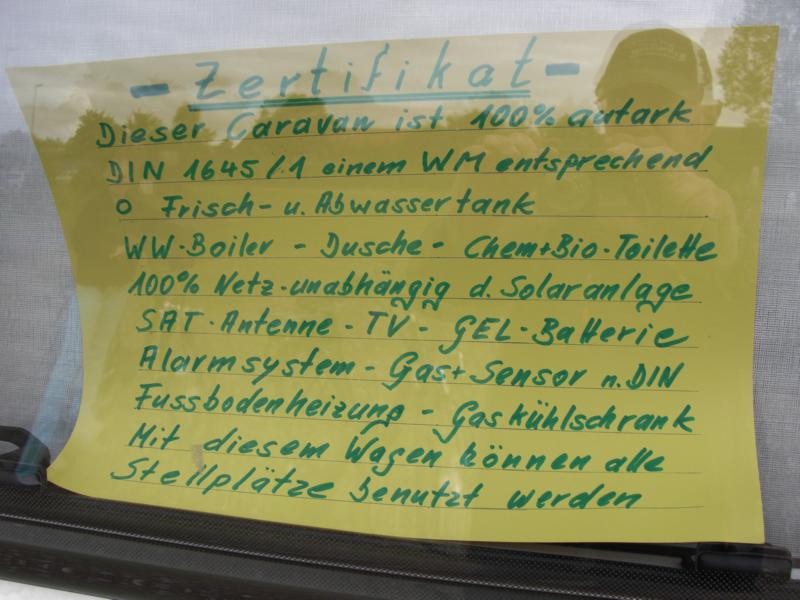 - Zertifikat -
Dieser Caravan ist 100% autark
DIN 1645/1 einem WM entsprechend
o Frisch- u. Abwassertank
WW-Boiler - Dusche - Chem+Bio-Toilette
100% Netz-unabhängig d. Solaranlage
SAT-Antenne - TV - GEL-Batterie
Alarmsystem - Gas+Sensor n. DIN
Fussbodenheizung - Gaskühlschrank
Mit diesem Wagen können alle
Stellplätze benutzt werden